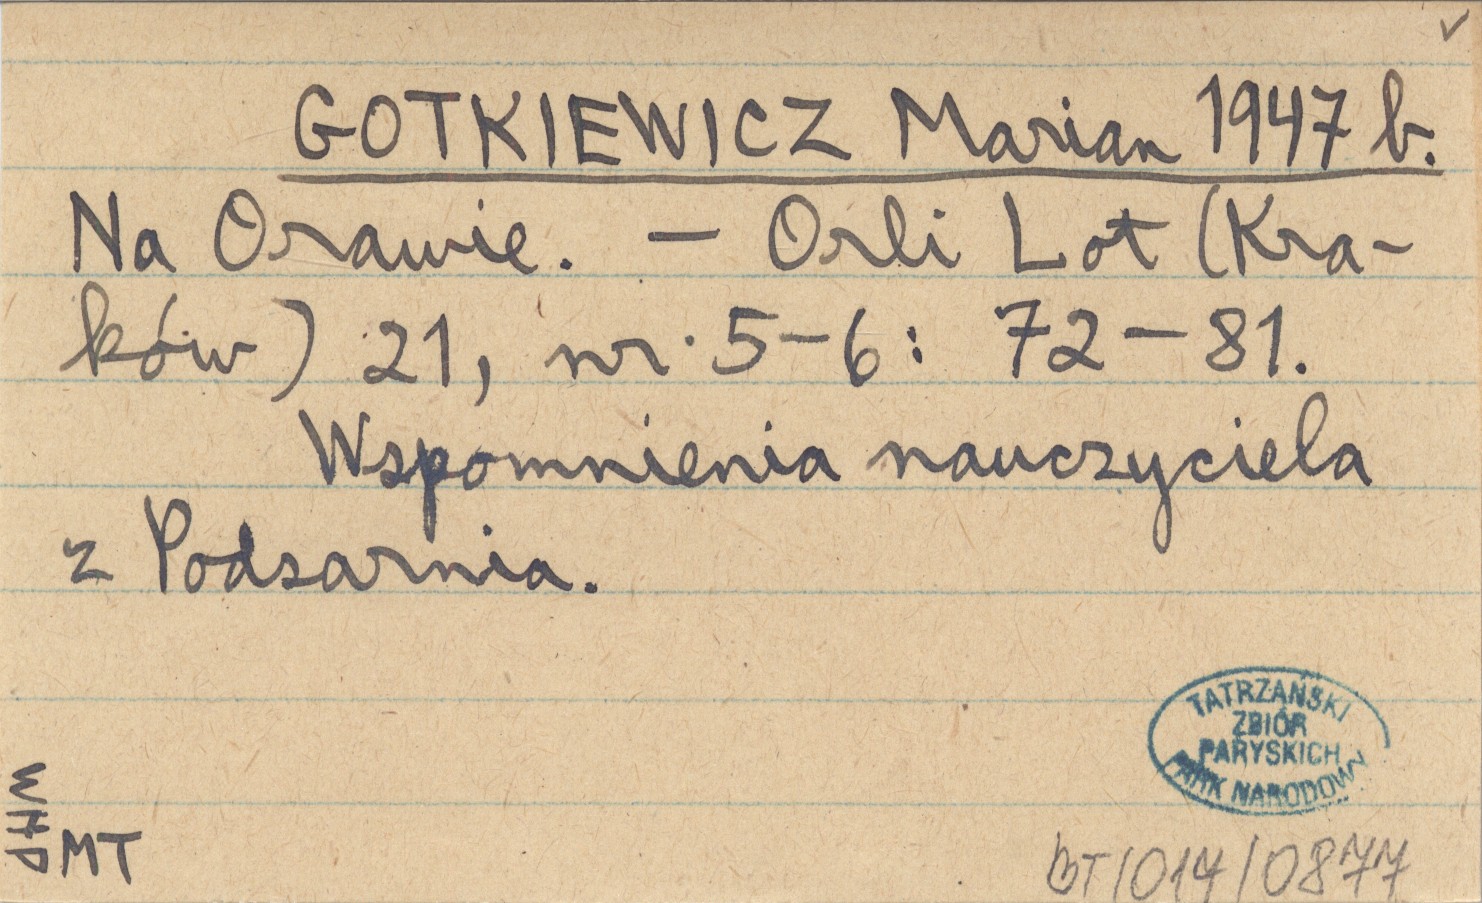 GOTKIEWICZ Marian 1947 b.
Na Orawie. – Orli Lot (Kra-
ków) 21, nr. 5–6: 72–81.
Wspomnienia nauczyciela
z Podsarnia.
TATRZAŃSKI
ZBIÓR
PARYSKICH
PARK NARODOWY
WHP
MT
BT/014/0877